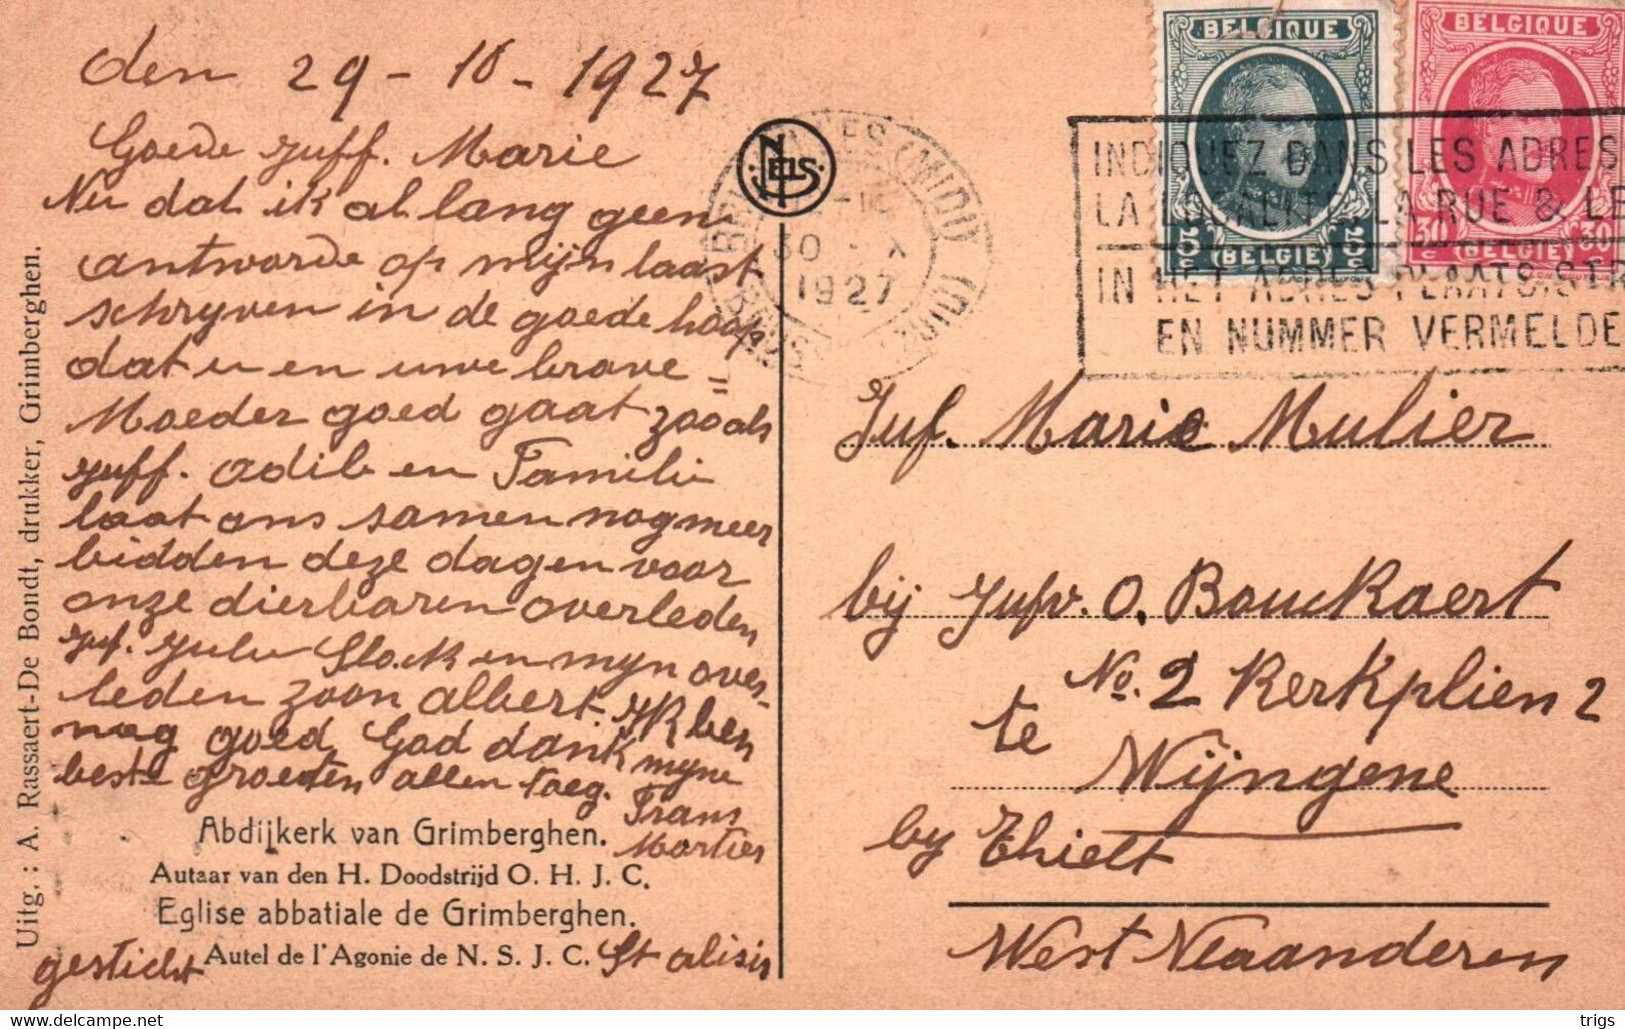 den 29 - 10 - 1927
Goede juff. Marie
Nu dat ik al lang geen
antworde op mijn laast
schryven in de goede hoop
dat u en uwe brave =
Moeder goed gaat zooals
juff. Odil en Famili
laat ons samen nog meer
bidden deze dagen voor
onze dierbaren overleden
juf. Julie Slock en myn over-
leden zoon albert. IK ben
nog goed God dank myne
beste groeten allen toeg.
Frans
Martier
gesticht St alisis
Abdijkerk van Grimberghen.
Autaar van den H. Doodstrijd O. H. J. C.
Eglise abbatiale de Grimberghen.
Autel de l'Agonie de N. S. J. C.
Uitg. : A. Rassaert-De Bondt, drukker, Grimberghen.
NELS
(MIDI)
30 X
1927
BELGIQUE
(BELGIE)
BELGIQUE
30 30
(BELGIE)
INDIQUEZ DANS LES ADRES
LA LOCALITE LA RUE & LE
IN HET ADRES PLAATS. STR
EN NUMMER VERMELDE
Juf. Marie Mulier
bij Jufv. O. Bouckaert
No. 2 Kerkplien 2
te Wijngene
by Thielt
West Vlaanderen
trigs
delcampe.net